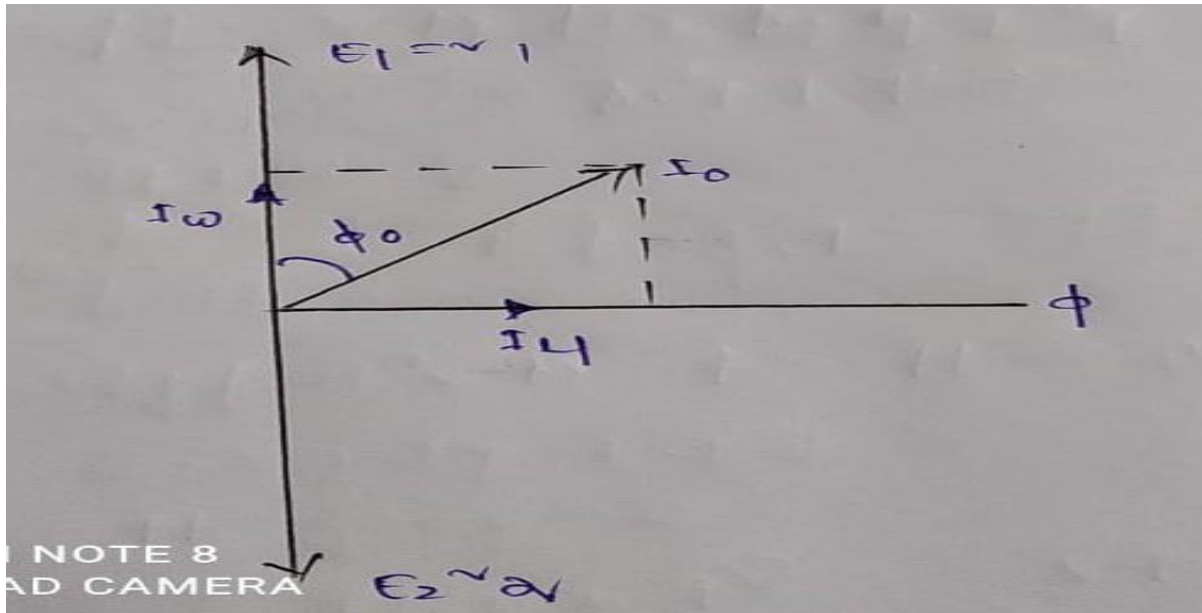 E1 = v1
I0
Iω
φ0
φ
Iμ
NOTE 8
AD CAMERA